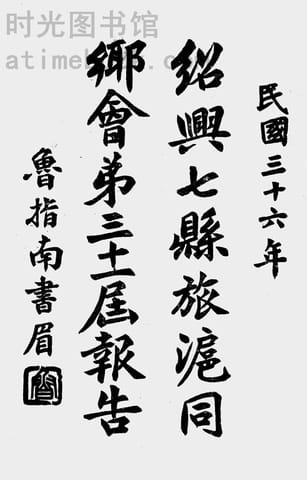 时光图书馆
民國三十六年
紹興七縣旅滬同
鄉會弟三十一屆報告
魯指南書眉